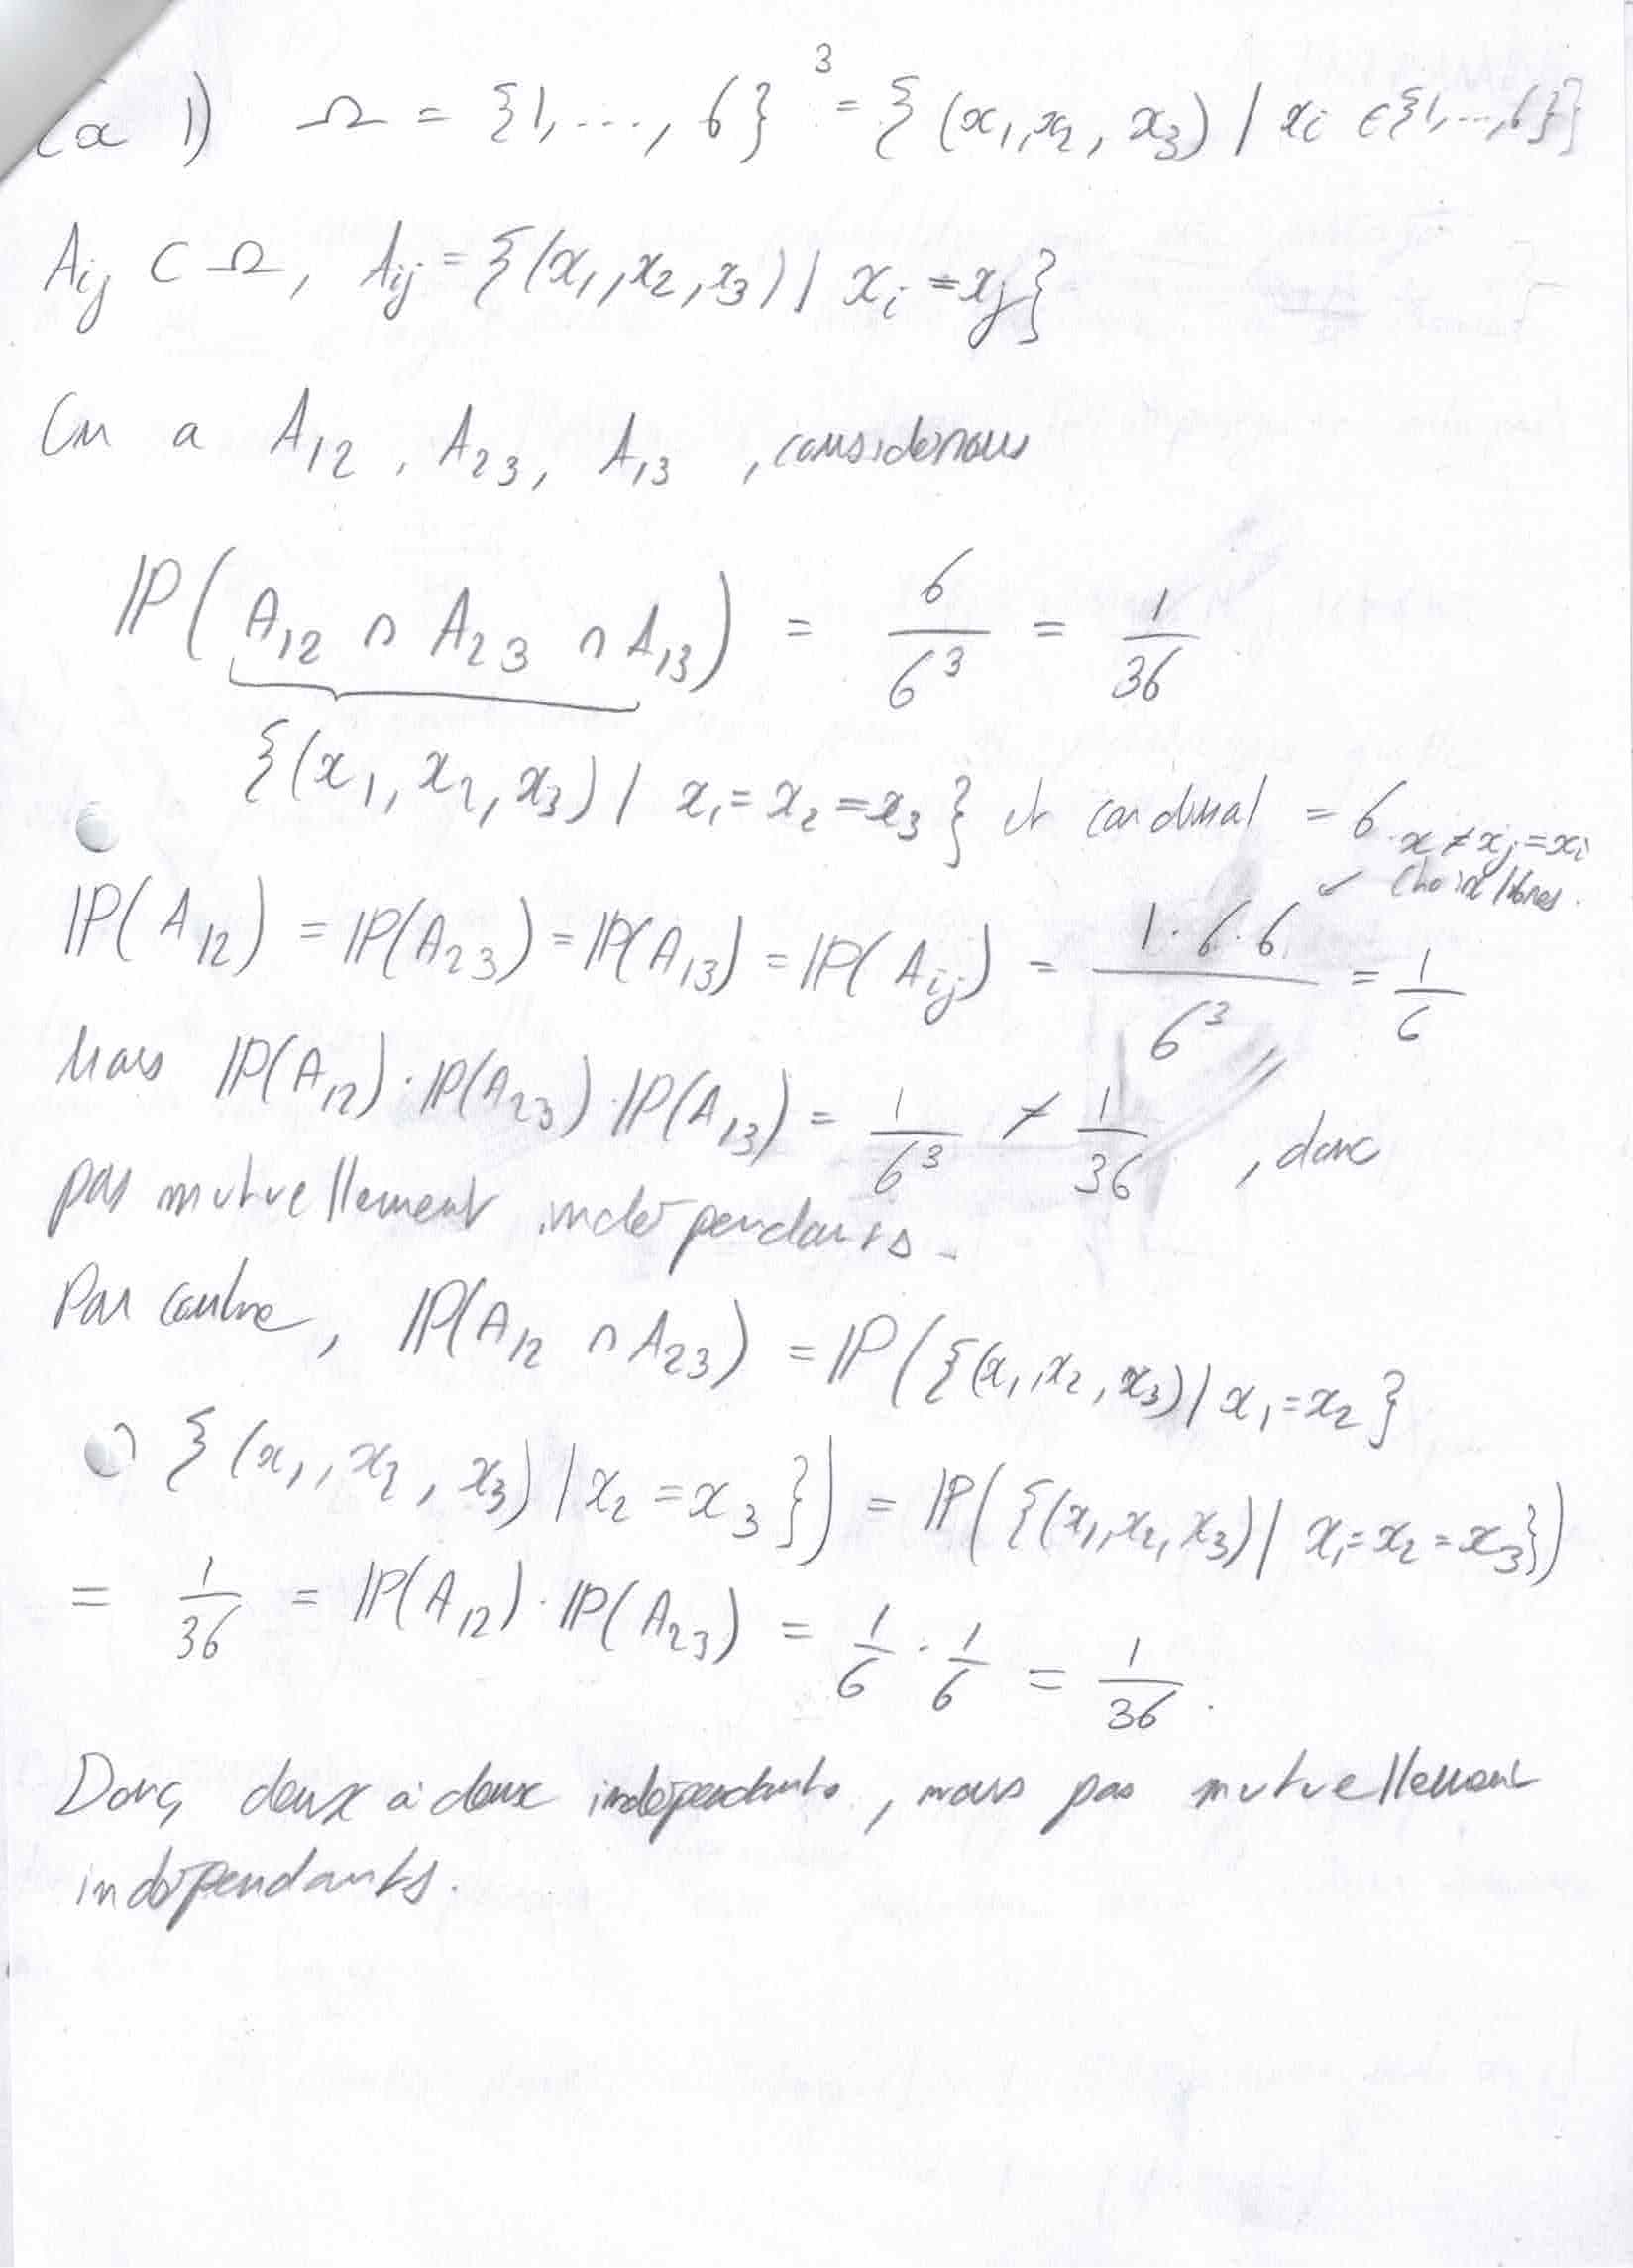 Ex 1) Ω = {1,...,6}³ = {(x₁,x₂,x₃) / xᵢ ∈ {1,...,6}}
Aᵢⱼ ⊂ Ω, Aᵢⱼ = {(x₁,x₂,x₃) / xᵢ = xⱼ}
On a A₁₂, A₂₃, A₁₃, considérons
ℙ(A₁₂ ∩ A₂₃ ∩ A₁₃) = 6/6³ = 1/36
{(x₁,x₂,x₃) / x₁ = x₂ = x₃} et cardinal = 6.
x ≠ xⱼ = xᵢ
↙ choix libres.
ℙ(A₁₂) = ℙ(A₂₃) = ℙ(A₁₃) = ℙ(Aᵢⱼ) = 1·6·6/6³ = 1/6
Mais ℙ(A₁₂)·ℙ(A₂₃)·ℙ(A₁₃) = 1/6³ ≠ 1/36, donc
pas mutuellement indépendants.
Par contre, ℙ(A₁₂ ∩ A₂₃) = ℙ({(x₁,x₂,x₃) / x₁ = x₂}
∩ {(x₁,x₂,x₃) / x₂ = x₃}) = ℙ({(x₁,x₂,x₃) / x₁ = x₂ = x₃})
= 1/36 = ℙ(A₁₂)·ℙ(A₂₃) = 1/6 · 1/6 = 1/36.
Donc, deux à deux indépendants, mais pas mutuellement
indépendants.